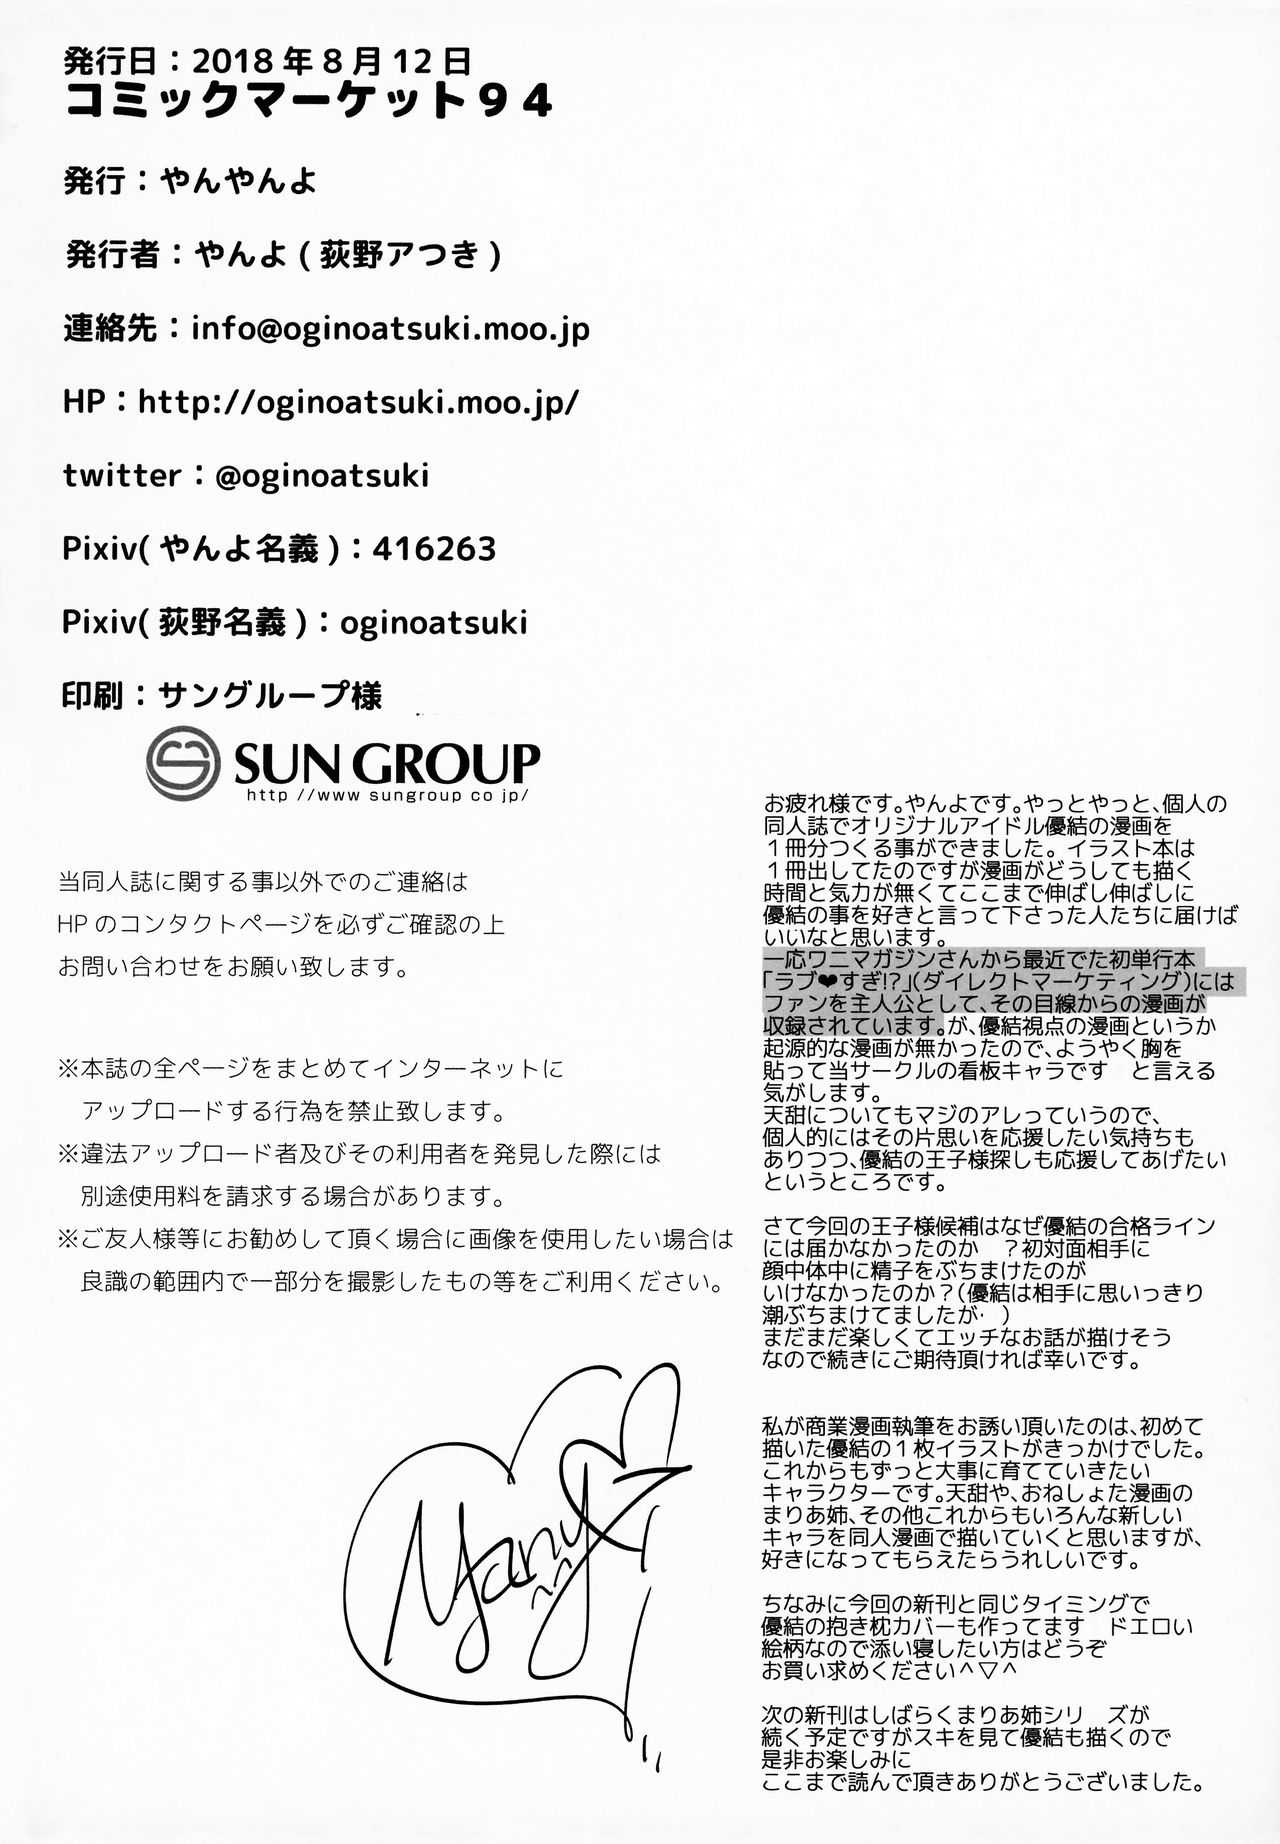 発行日：2018年8月12日
コミックマーケット94
発行：やんやんよ
発行者：やんよ(荻野アつき)
連絡先：info@oginoatsuki.moo.jp
HP：http://oginoatsuki.moo.jp/
twitter：@oginoatsuki
Pixiv(やんよ名義)：416263
Pixiv(荻野名義)：oginoatsuki
印刷：サングループ様
SUN GROUP
http //www sungroup co jp/
当同人誌に関する事以外でのご連絡は
HPのコンタクトページを必ずご確認の上
お問い合わせをお願い致します。
※本誌の全ページをまとめてインターネットに
アップロードする行為を禁止致します。
※違法アップロード者及びその利用者を発見した際には
別途使用料を請求する場合があります。
※ご友人様等にお勧めして頂く場合に画像を使用したい場合は
良識の範囲内で一部分を撮影したもの等をご利用ください。
お疲れ様です。やんよです。やっとやっと、個人の
同人誌でオリジナルアイドル優結の漫画を
1冊分つくる事ができました。イラスト本は
1冊出してたのですが漫画がどうしても描く
時間と気力が無くてここまで伸ばし伸ばしに
優結の事を好きと言って下さった人たちに届けば
いいなと思います。
一応ワニマガジンさんから最近でた初単行本
「ラブ❤すぎ!?」(ダイレクトマーケティング)には
ファンを主人公として、その目線からの漫画が
収録されています。が、優結視点の漫画というか
起源的な漫画が無かったので、ようやく胸を
貼って当サークルの看板キャラです　と言える
気がします。
天甜についてもマジのアレっていうので、
個人的にはその片思いを応援したい気持ちも
ありつつ、優結の王子様探しも応援してあげたい
というところです。
さて今回の王子様候補はなぜ優結の合格ライン
には届かなかったのか　？初対面相手に
顔中体中に精子をぶちまけたのが
いけなかったのか？(優結は相手に思いっきり
潮ぶちまけてましたが･　)
まだまだ楽しくてエッチなお話が描けそう
なので続きにご期待頂ければ幸いです。
私が商業漫画執筆をお誘い頂いたのは、初めて
描いた優結の1枚イラストがきっかけでした。
これからもずっと大事に育てていきたい
キャラクターです。天甜や、おねしょた漫画の
まりあ姉、その他これからもいろんな新しい
キャラを同人漫画で描いていくと思いますが、
好きになってもらえたらうれしいです。
ちなみに今回の新刊と同じタイミングで
優結の抱き枕カバーも作ってます　ドエロい
絵柄なので添い寝したい方はどうぞ
お買い求めください＾▽＾
次の新刊はしばらくまりあ姉シリ　ズが
続く予定ですがスキを見て優結も描くので
是非お楽しみに
ここまで読んで頂きありがとうございました。